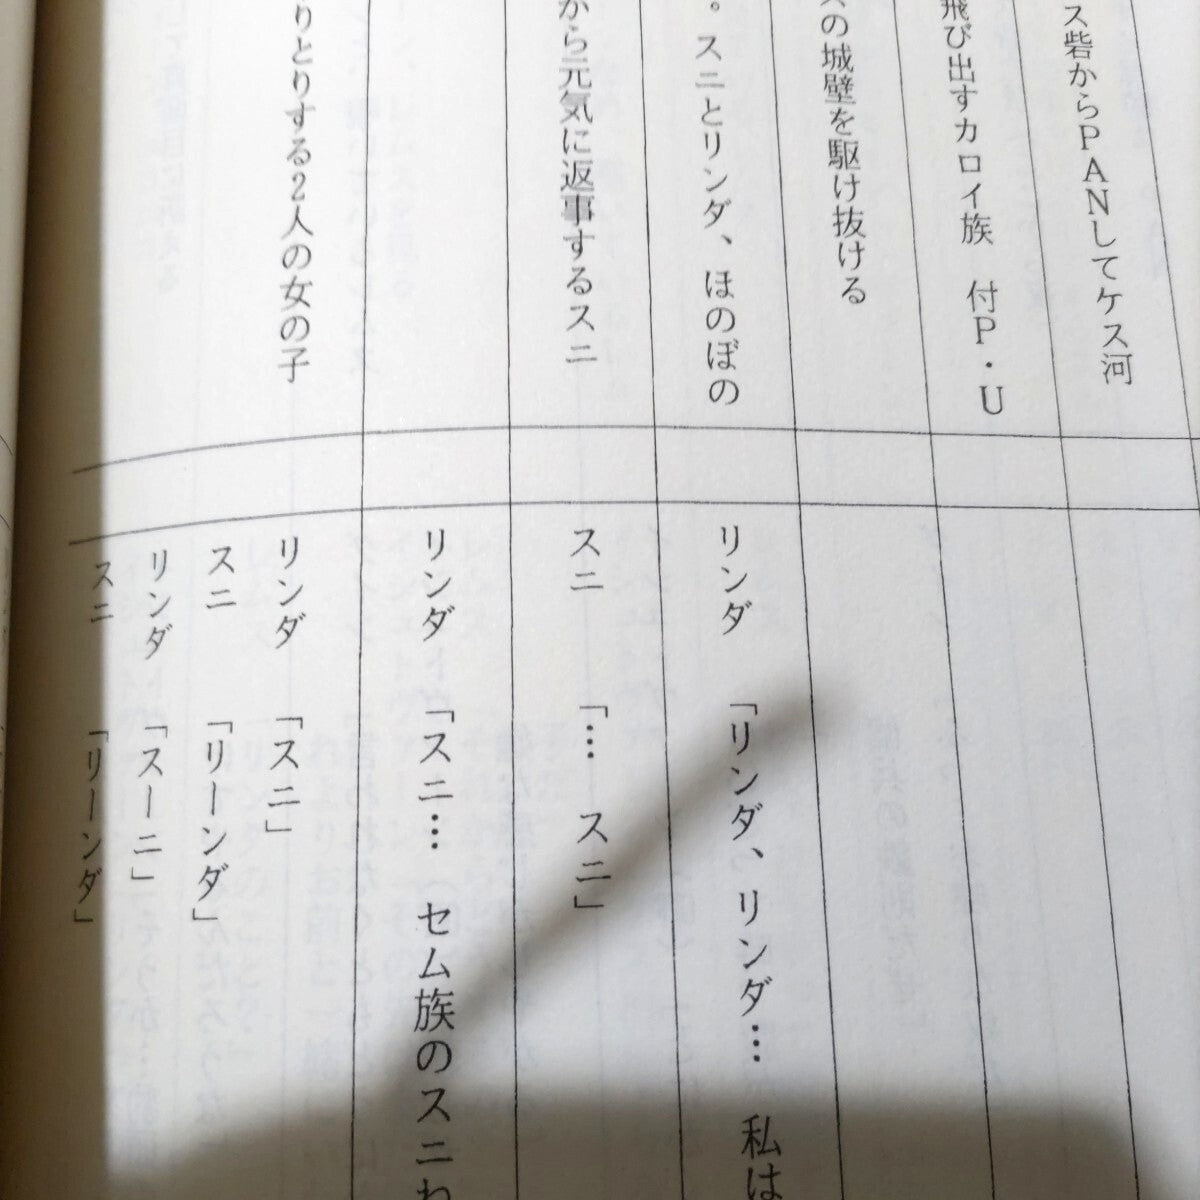 ス砦からPANしてケス河
飛び出すカロイ族 付P・U
の城壁を駆け抜ける
。スニとリンダ、ほのぼの
から元気に返事するスニ
りとりする2人の女の子
リンダ 「リンダ、リンダ… 私は
スニ 「… スニ」
リンダ 「スニ… セム族のスニね
リンダ 「スニ」
スニ 「リーンダ」
リンダ 「スーニ」
スニ 「リーンダ」